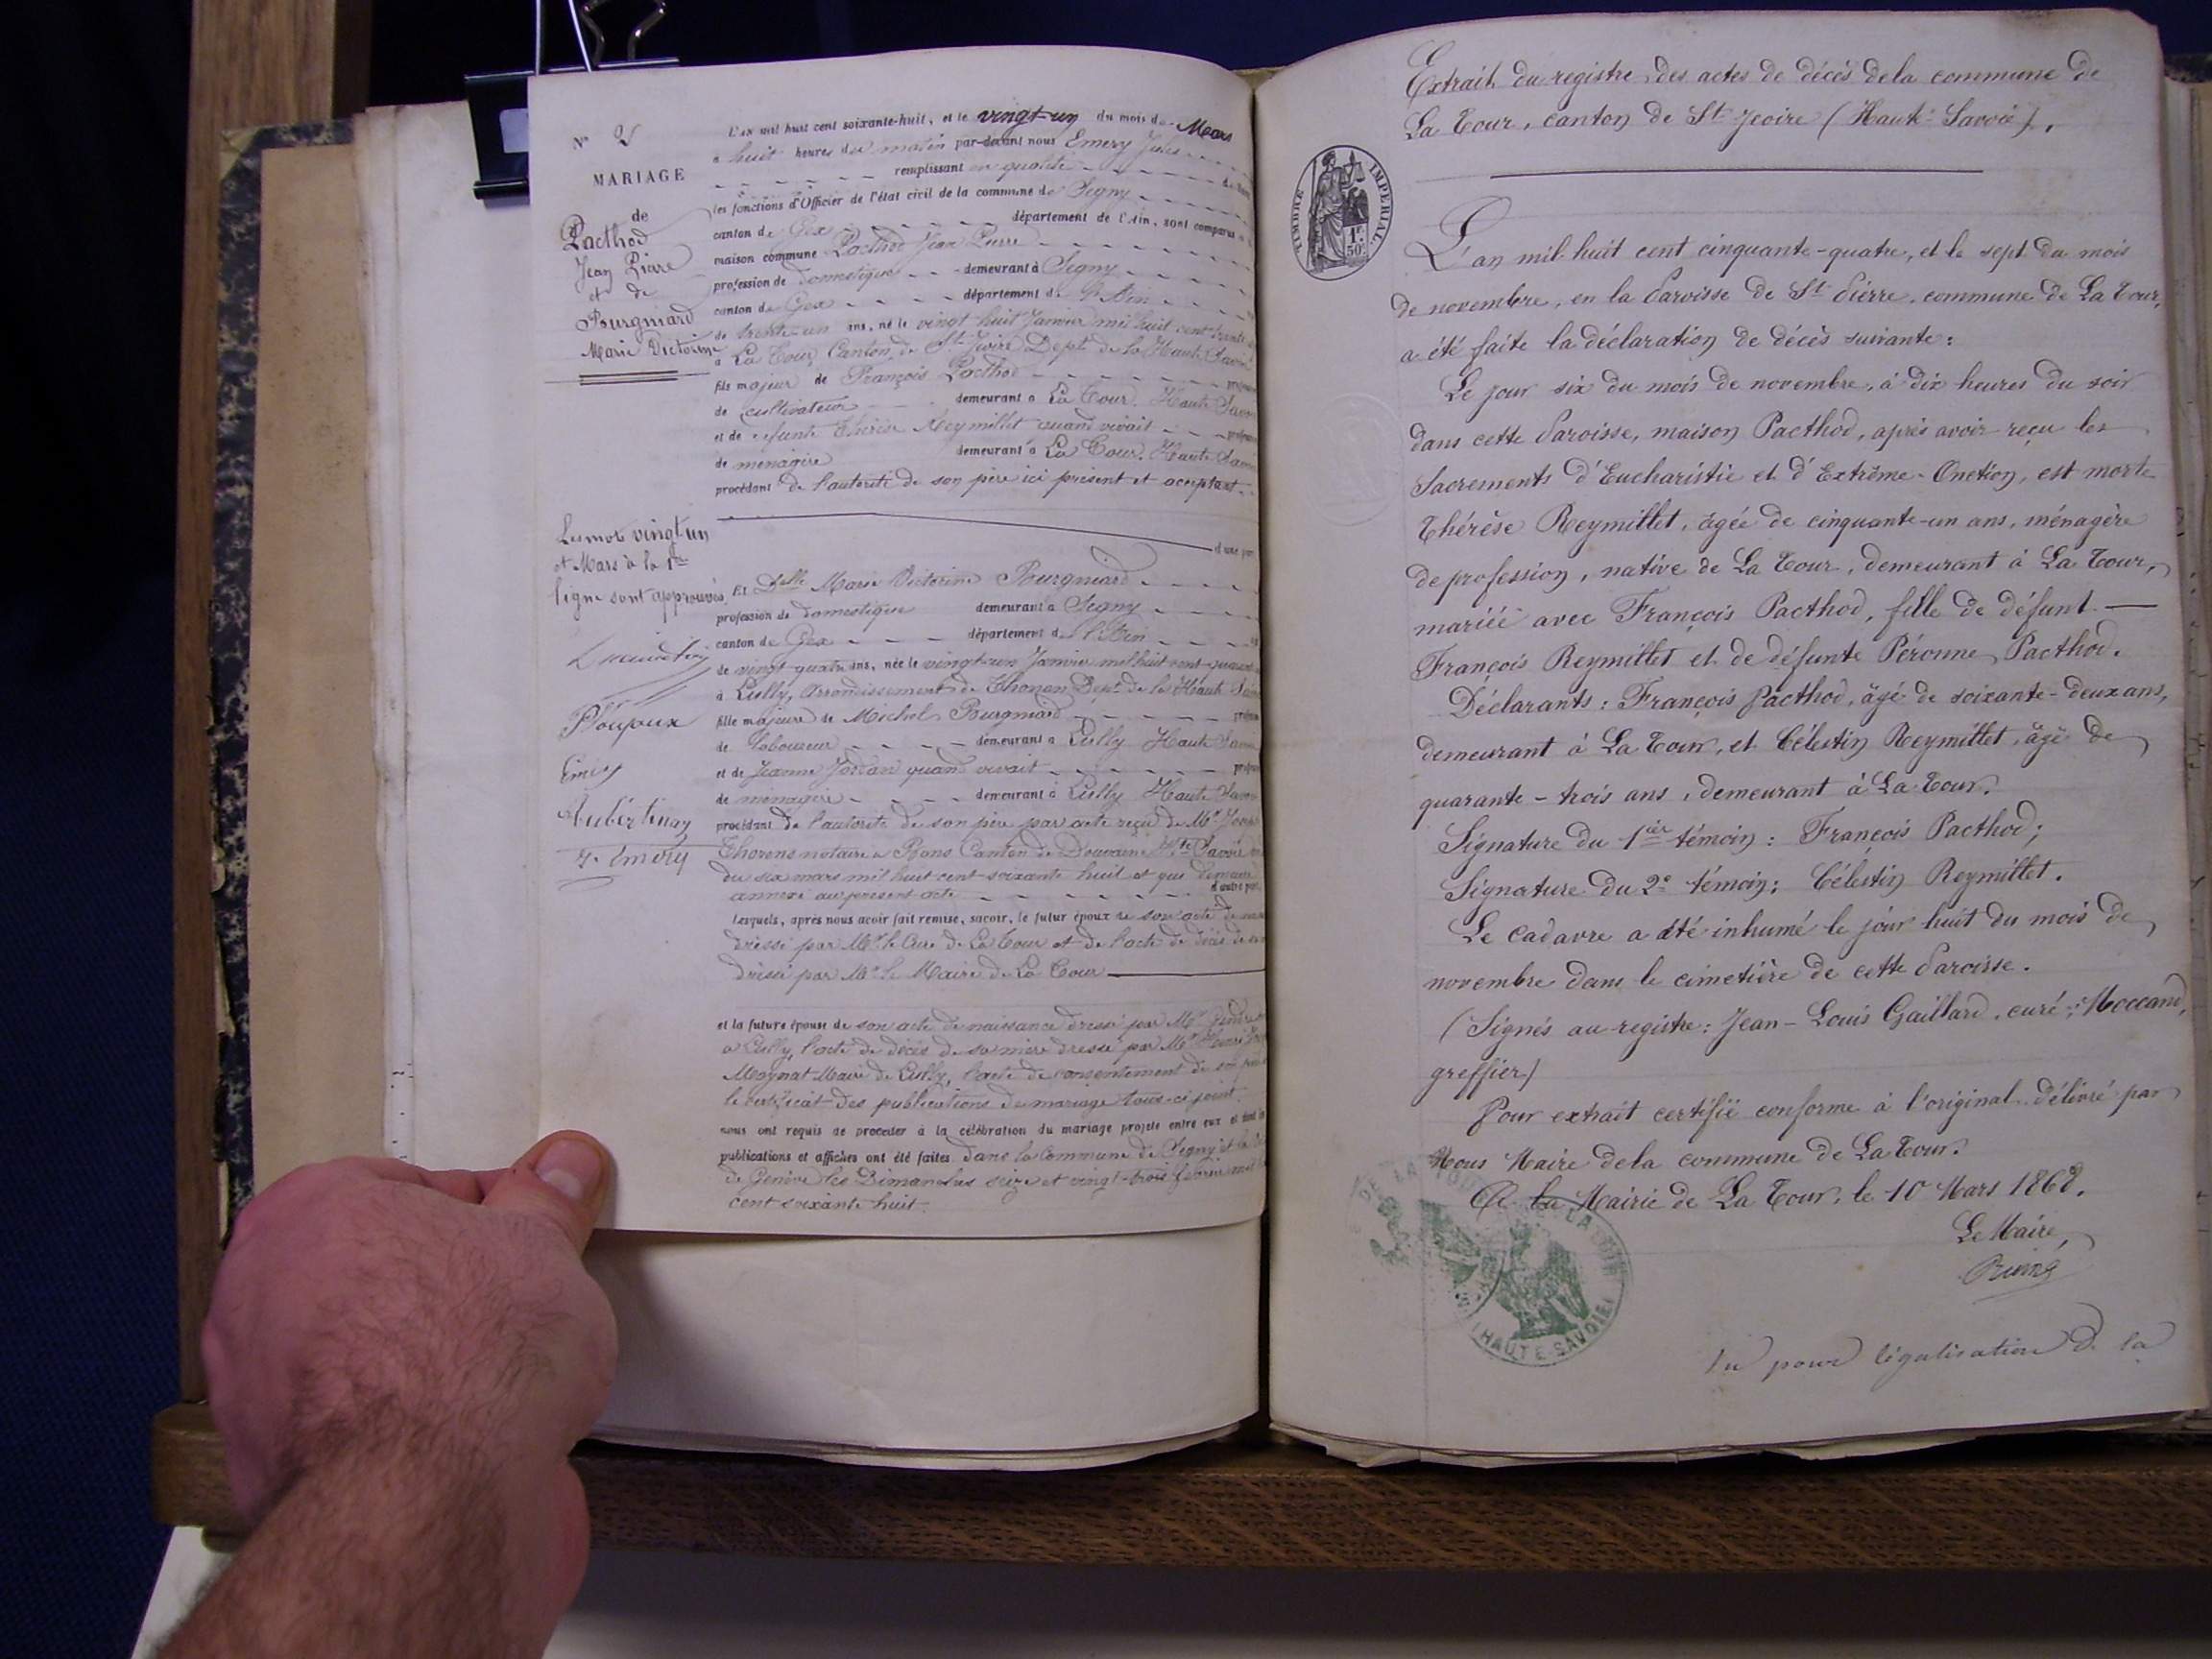 N° 2
MARIAGE
de
Pacthod
Jean Piare
et de
Bourgniard
Marie Victorine
Les mots vingt un
et Mars à la 1re
ligne sont approuvés
Ploujoux
Emery
Aubértinay
L'an mil huit cent soixante-huit, et le vingt-un du mois de Mars
a huit heures du matin par-devant nous Emery Jules
remplissant en qualité
les fonctions d'Officier de l'état civil de la commune de Segny
canton de Gex département de l'Ain, sont comparus
maison commune Pacthod Jean Pierre
profession de Domestique demeurant à Segny
canton de Gex département de l'Ain
de trente-un ans, né le vingt huit Janvier mil huit cent trente
a La Tour, Canton de St Jeoire Dept de la Haute Savoie
fils majeur de François Pacthod
de cultivateur demeurant a La Tour. Haute Savoie
et de défunte Thérèse Reymillet quand vivait
de ménagère demeurant a La Tour. Haute Savoie
procédant de l'autorité de son père ici présent et acceptant
d'une part
Et Dlle Marie Victorine Bourgniard
profession de Domestique demeurant a Segny
canton de Gex département de l'Ain
de vingt quatre ans, née le vingt-un Janvier mil huit cent quarante
a Lully, arrondissement de Thonon Dept de la Haute Savoie
fille majeure de Michel Bourgniard
de laboureur demeurant a Lully Haute Savoie
et de Jeanne Jordan quand vivait
de ménagère demeurant à Lully Haute Savoie
procédant de l'autorité de son père par acte reçu de Me
Thorens notaire a Bons Canton de Douvaine Hte Savoie
du six mars mil huit cent soixante huit et qui demeure
annexé au présent acte d'autre part
Lesquels, après nous avoir fait remise, savoir, le futur époux de son acte de
dressé par Mr le Curé de La Tour et de l'acte de décès de sa
dressé par Mr le Maire de La Tour
et la future épouse de son acte de naissance dressé par Mr
a Lully, l'acte de décès de sa mère dressé par Mr
Meynat Maire de Lully, l'acte de consentement de son père
le certificat des publications du mariage tous ci joint.
nous ont requis de procéder à la célébration du mariage projeté entre eux et dont les
publications et affiches ont été faites dans la Commune de Segny et la
de Genève les Dimanches seize et vingt-trois février mil
cent soixante huit.
Extrait du registre des actes de décès de la commune de
La Tour, canton de St Jeoire (Haute-Savoie).
TIMBRE IMPERIAL
1F 50C
L'an mil huit cent cinquante-quatre, et le sept du mois
de novembre, en la Paroisse de St Pierre, commune de La Tour,
a été faite la déclaration de décès suivante :
Le jour six du mois de novembre, à dix heures du soir
dans cette Paroisse, maison Pacthod, après avoir reçu les
Sacrements d'Eucharistie et d'Extrême-Onction, est morte
Thérèse Reymillet, âgée de cinquante-un ans, ménagère
de profession, native de La Tour, demeurant à La Tour,
mariée avec François Pacthod, fille de défunt
François Reymillet et de défunte Péronne Pacthod.
Déclarants : François Pacthod, âgé de soixante-deux ans,
demeurant à La Tour, et Célestin Reymillet, âgé de
quarante-trois ans, demeurant à La Tour.
Signature du 1er témoin : François Pacthod;
Signature du 2e témoin : Célestin Reymillet.
Le cadavre a été inhumé le jour huit du mois de
novembre dans le cimetière de cette Paroisse.
(Signés au registre : Jean-Louis Gaillard, curé; Moccand,
greffier)
Pour extrait certifié conforme à l'original délivré par
Nous Maire de la commune de La Tour.
A la Mairie de La Tour, le 10 Mars 1868.
Le Maire,
HAUTE-SAVOIE
Vu pour légalisation de la